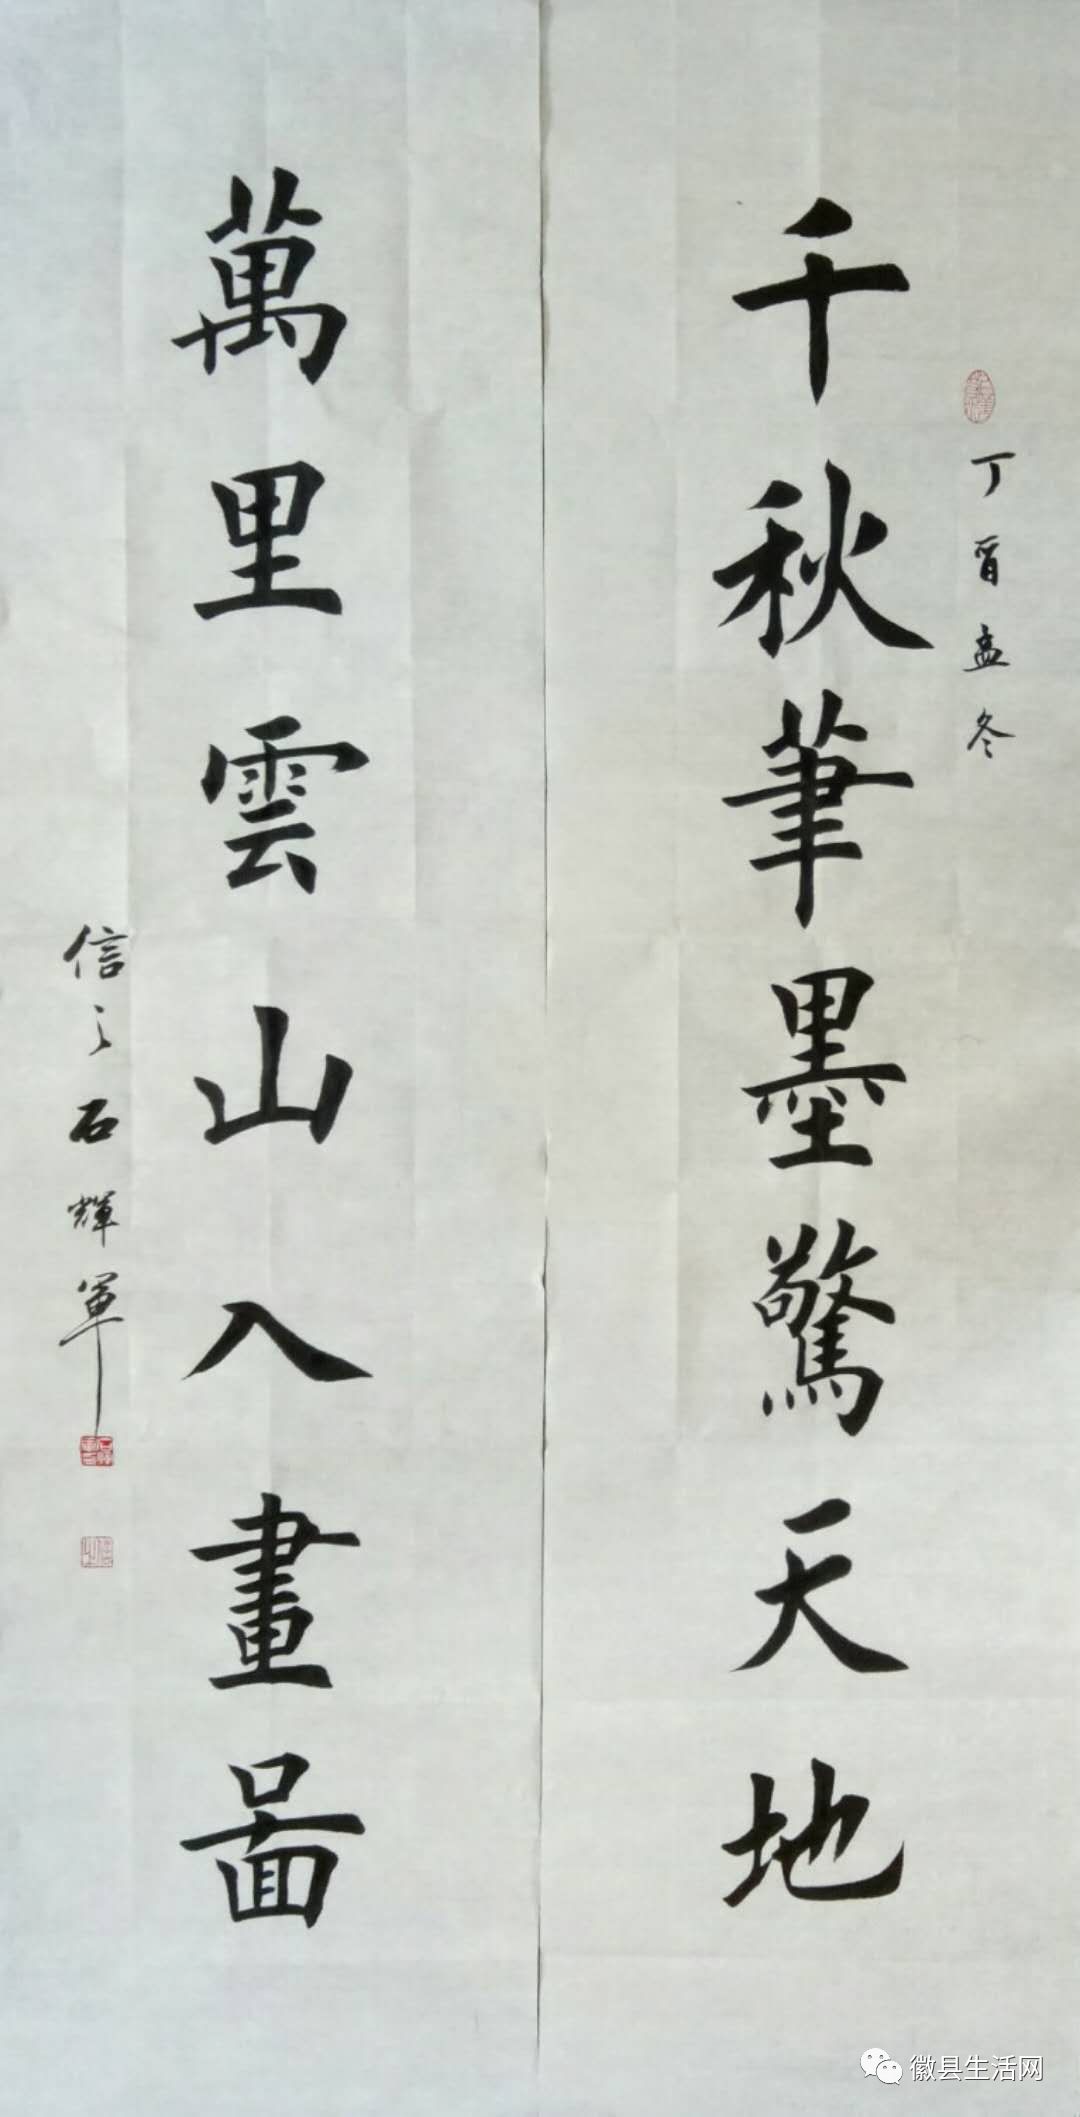 丁酉孟冬
千秋筆墨驚天地
萬里雲山入畫圖
信之石輝軍
徽县生活网